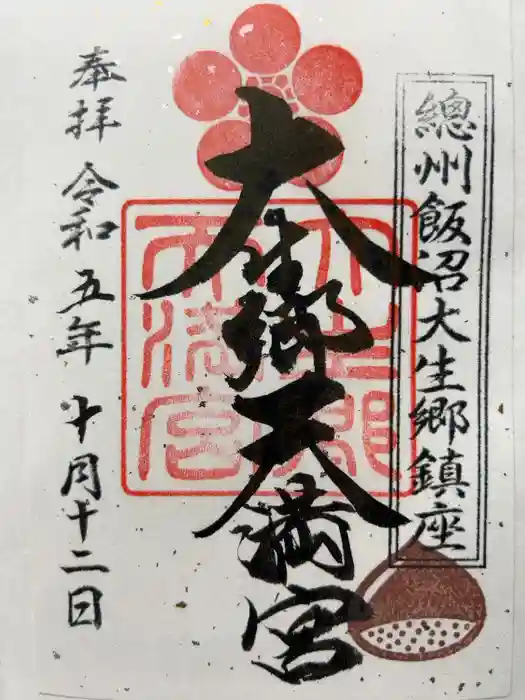 總州飯沼大生郷鎮座
大生郷天満宮
大生郷
天満宮
奉拝 令和五年 十月十二日